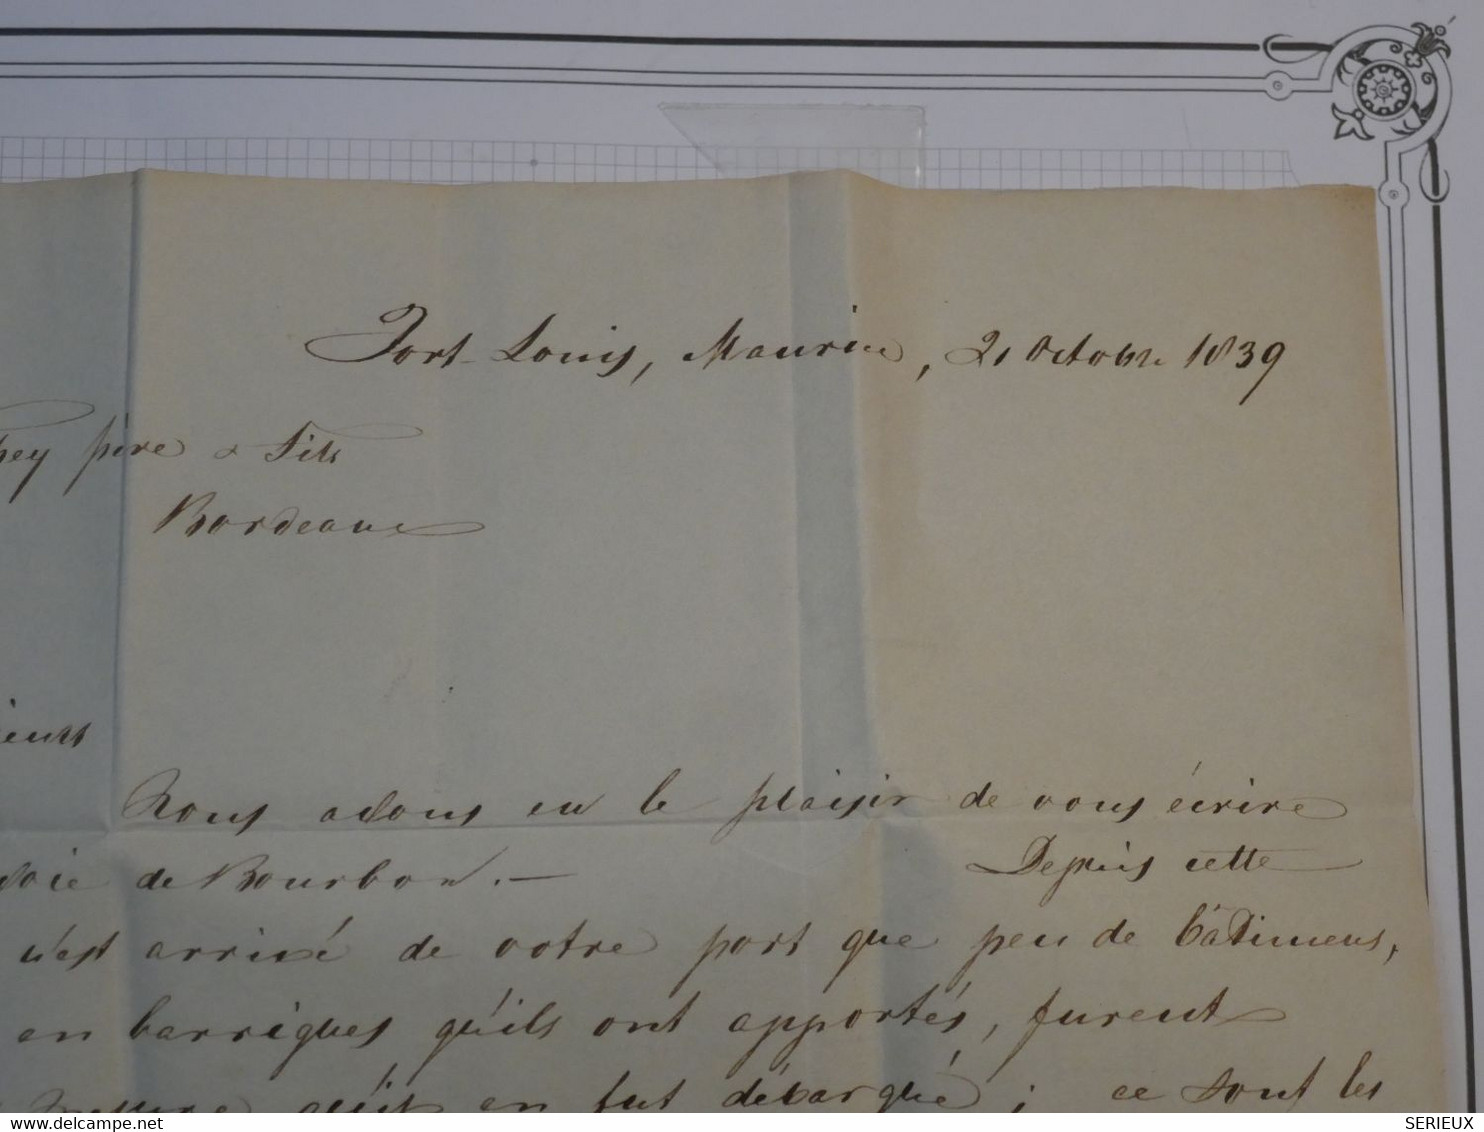 Port-Louis, Maurice, 21 Octobre 1839
père & Fils
Bordeaux
Nous avons eu le plaisir de vous écrire
de Bourbon. — Depuis cette
n'est arrivé de votre port que peu de bâtimens,
en barriques qu'ils ont apportés, furent
mesure qu'il en fut débarqué ; ce sont les
www.delcampe.net
SERIEUX